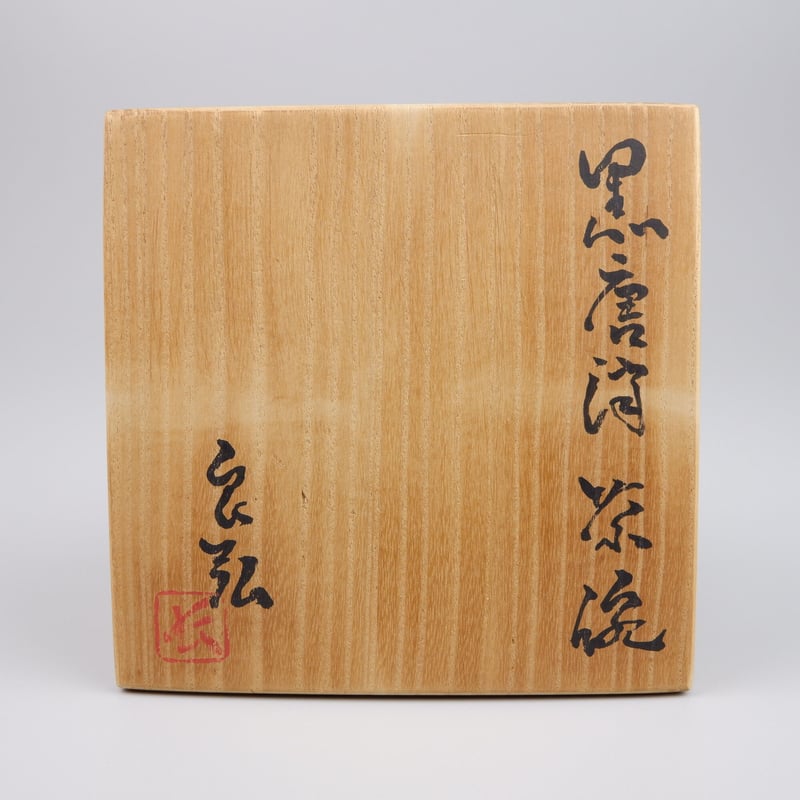 黒唐津 茶碗
良弘